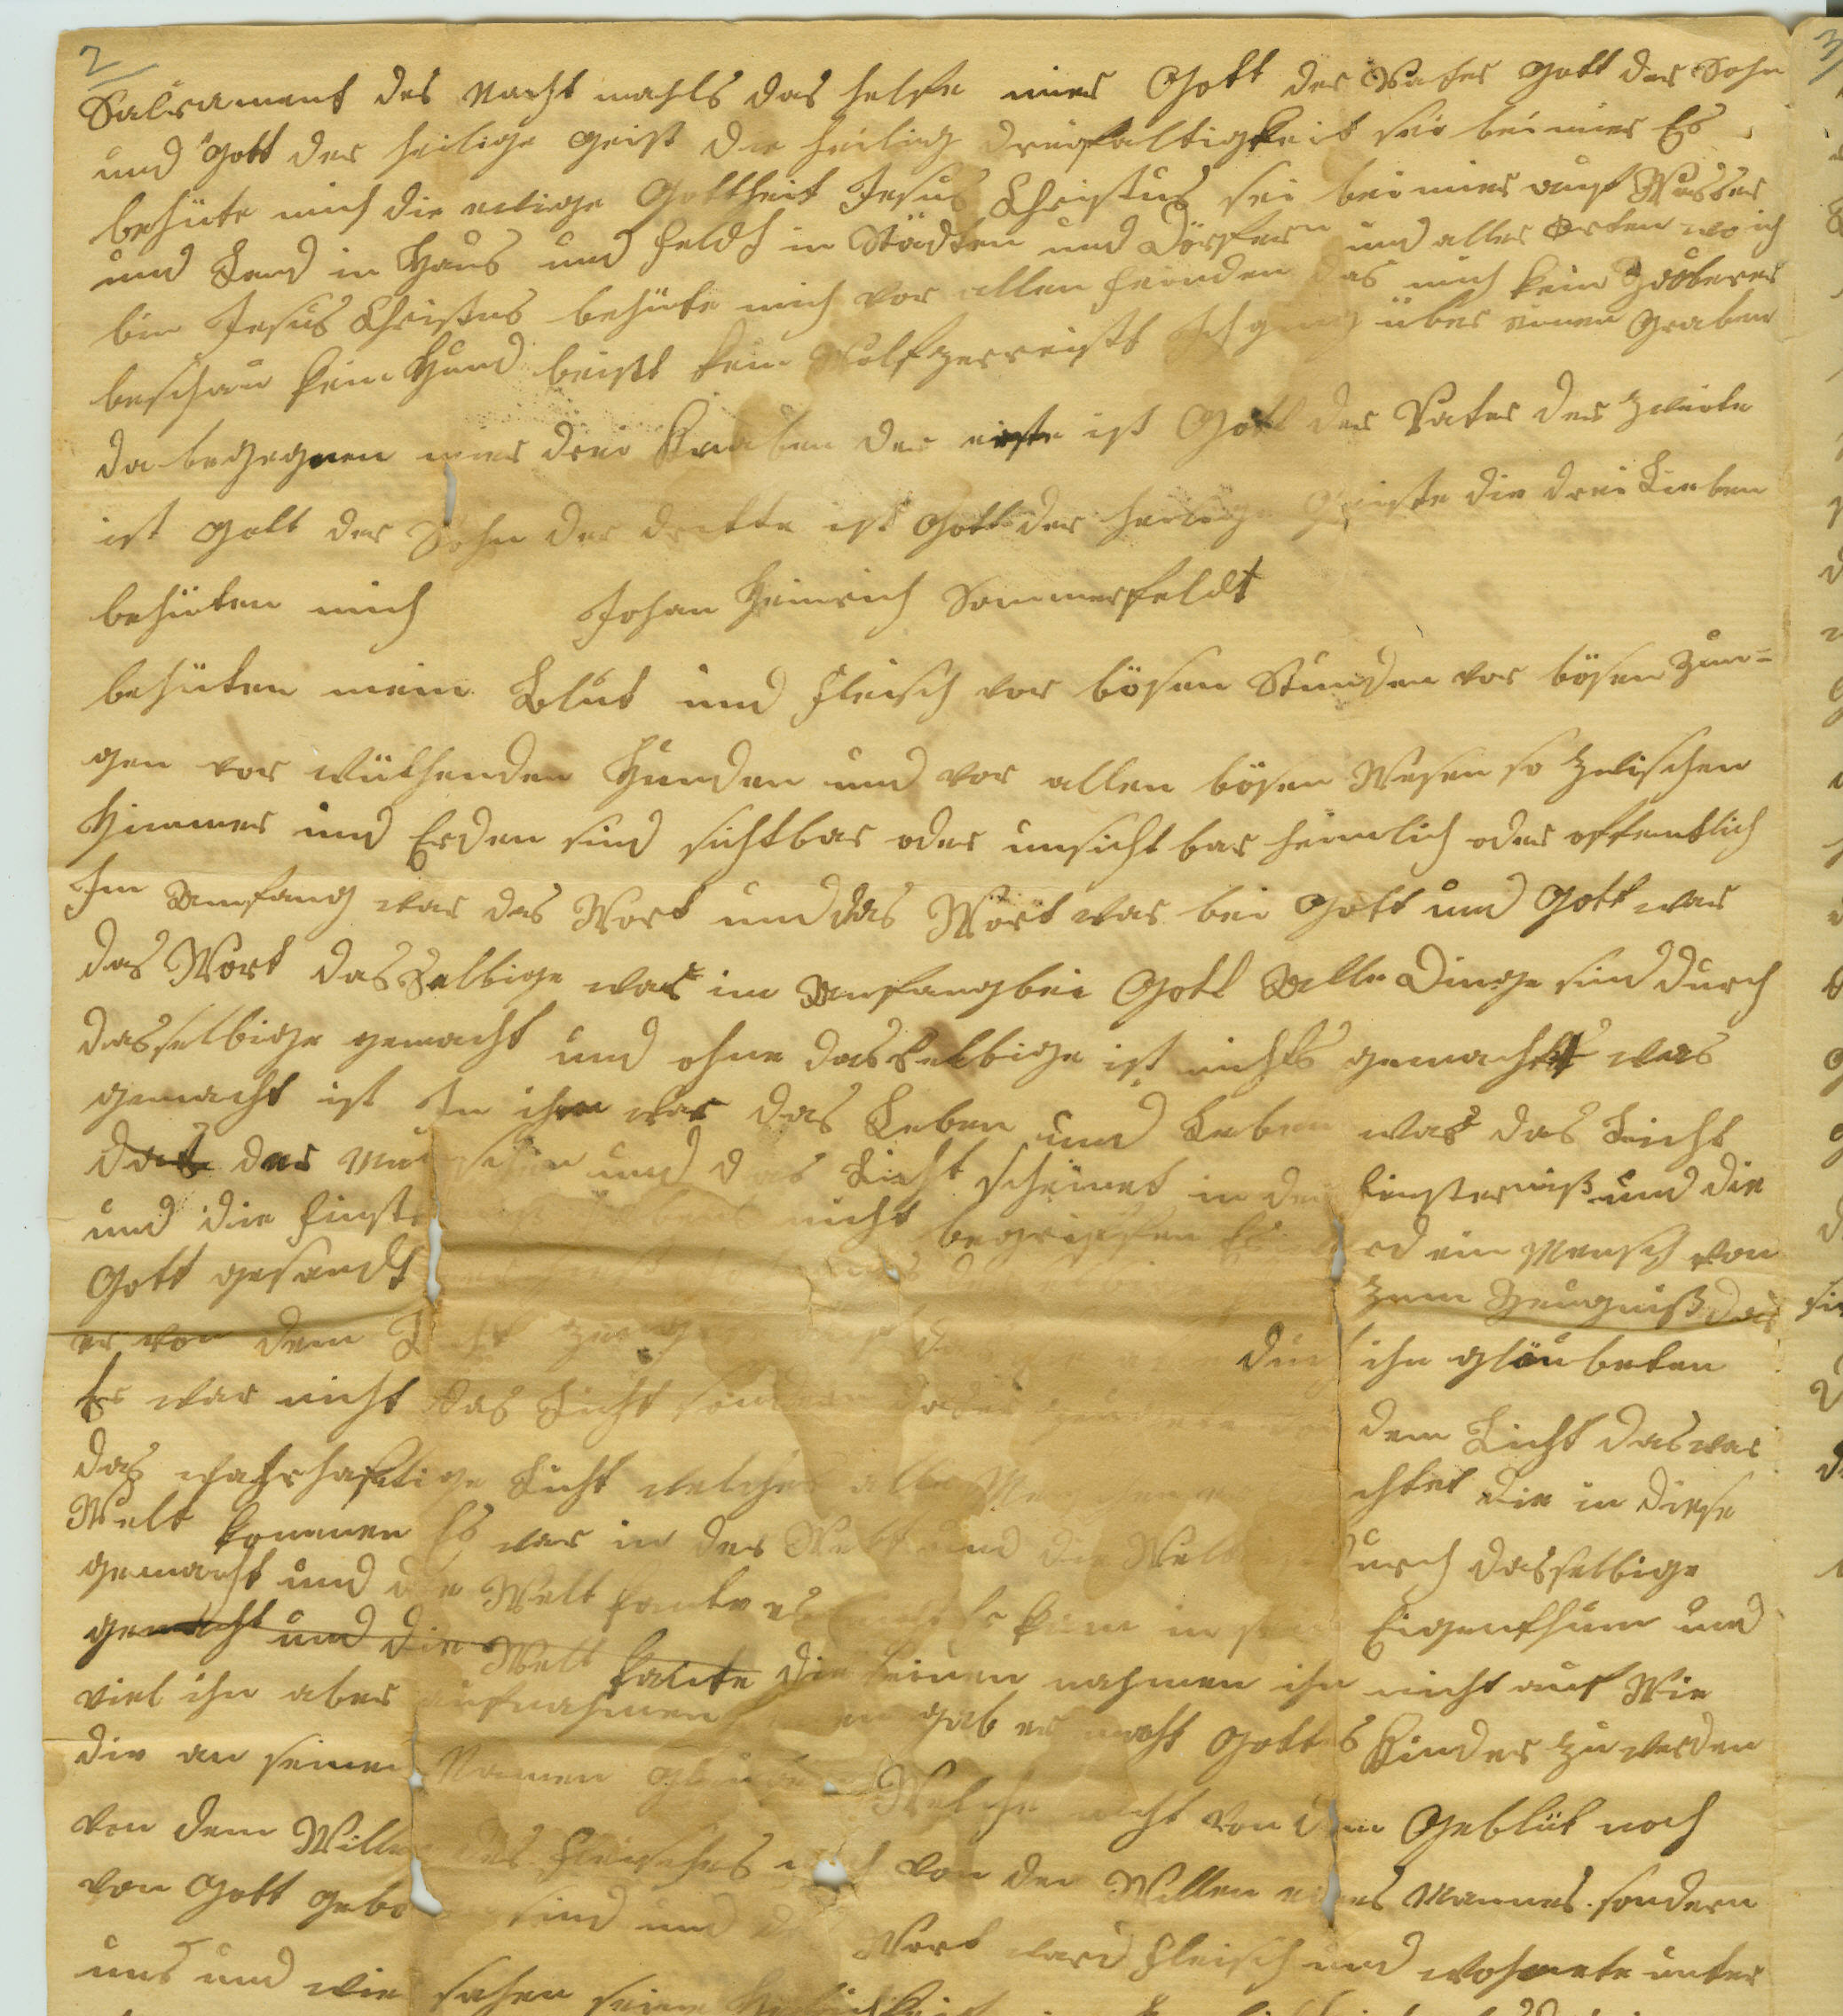 2
Sakrament des Nacht mahls das helfe mier Gott der Vater Gott der Sohn
und Gott der heilige Geist die heilig dreifaltigkeit sei bei mier Es
behüte mich die ewige Gottheit Jesus Christus sei bei mier auf Wasser
und Land in Haus und Feld in Städten und Dörfern und aller Orten wo ich
bin Jesus Christus behüte mich vor allen feinden das mich kein Zauberer
beschau kein Hund beißt kein Wolf zerreißt Ich ging über einen Graben
da begegnen mier drei Knaben der erste ist Gott der Vater der Zweite
ist Gott der Sohn der dritte ist Gott der heilige Geiste die drei Lieben
behüten mich Johan Heinrich Sommerfeldt
behüten mein Blut und Fleisch vor bösen Stunden vor bösen Zun=
gen vor wüthenden Hunden und vor allen bösen Wesen so zwischen
Himmer und Erden sind sichtbar oder unsichtbar heimlich oder offentlich
Im Anfang war das Wort und das Wort war bei Gott und Gott war
das Wort dasselbige war im Anfang bei Gott Alle Dinge sind durch
dasselbige gemacht und ohne dasselbige ist nichts gemacht was
gemacht ist In ihm war das Leben und Leben war das Licht
der Menschen und das Licht scheinet in der Finsterniß und die
und die Finst nicht begriffen ein Mensch von
Gott gesandt zum Zeugniß das
er von dem Licht durch ihn gläubeten
Er war nicht das Licht sondern dem Licht das war
das wahrhaftige Licht welches alle Menschen die in diese
Welt kommen Es war in der Welt und die Welt durch dasselbige
gemacht und die Welt kante es kam in sein Eigenthum und
gemacht und die Welt kante die Seinen nahmen ihn nicht auf Wie
viel ihn aber aufnahmen gab er macht Gottes Kinder zu werden
die an seinen Namen Welche nicht von dem Geblüt noch
von dem Willen des Fleisches noch von den Willen eines Mannes sondern
von Gott geboren sind und das Wort ward Fleisch und wohnete unter
uns und wir sahen seine